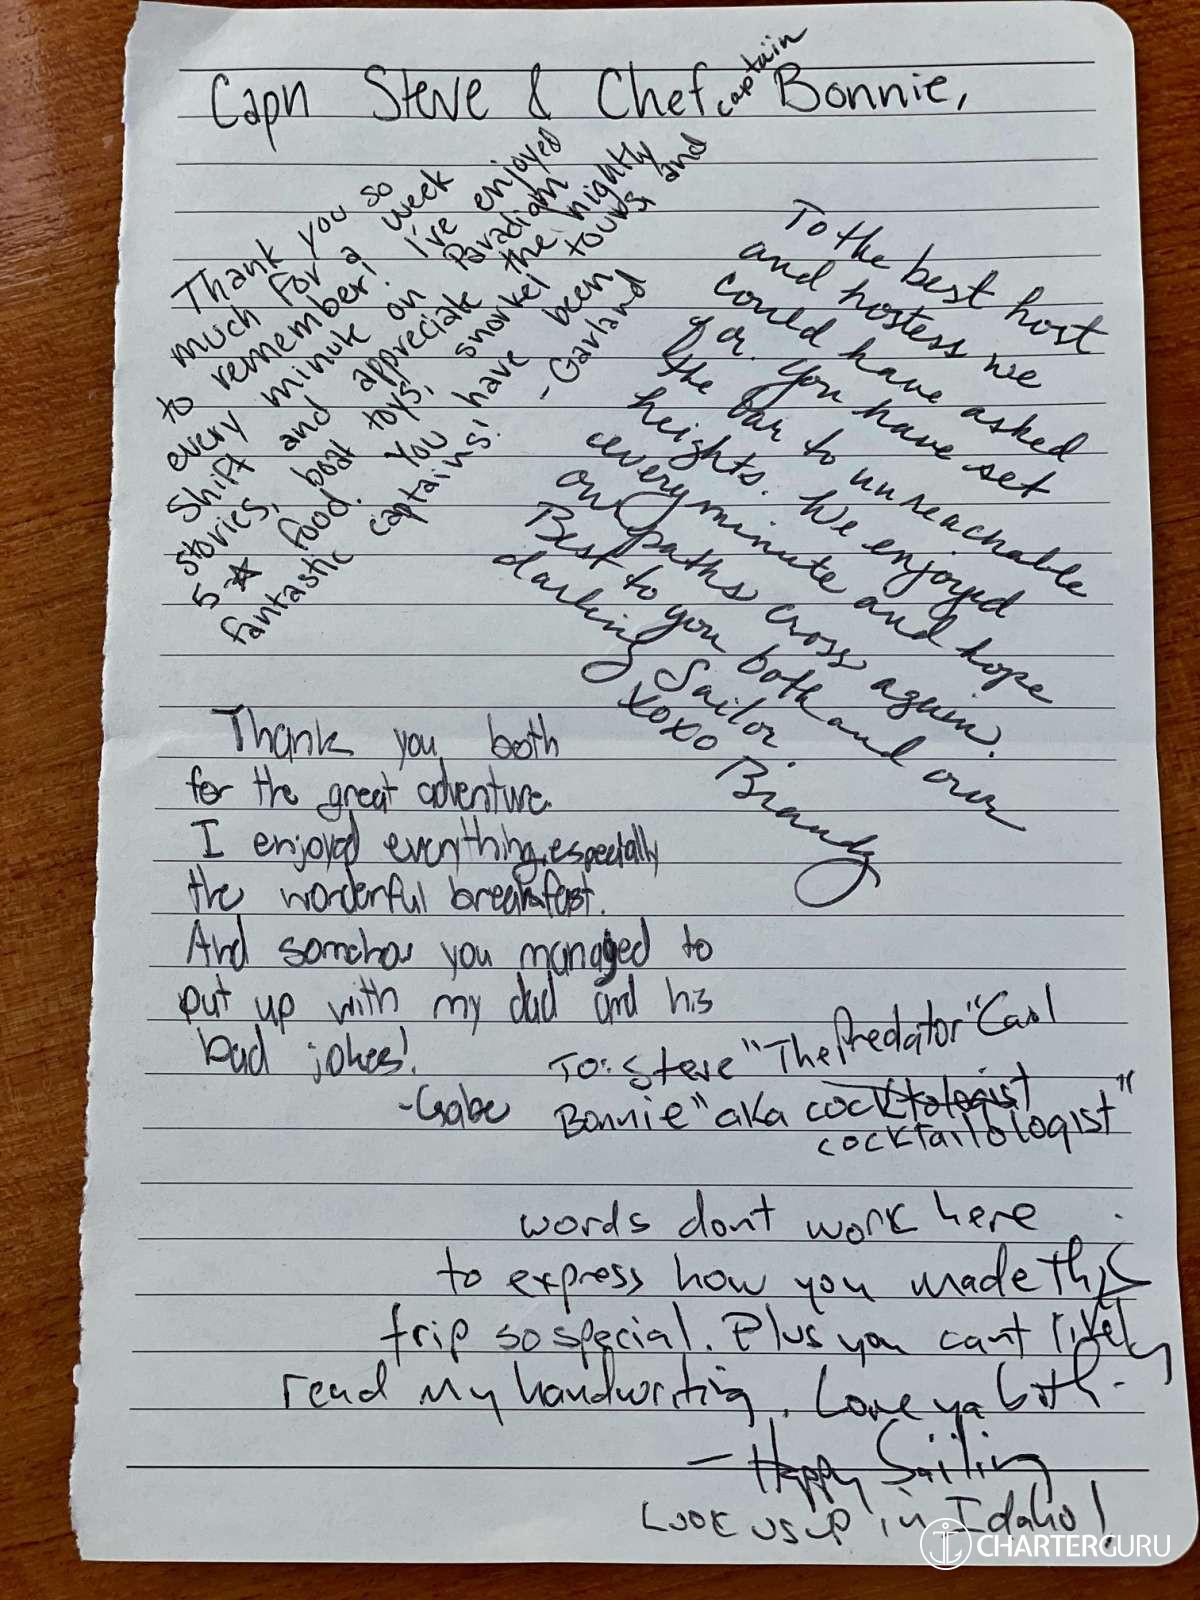 Capn Steve & Chef captain Bonnie,
Thank you so
much for a week
to remember! I've enjoyed
every minute on Paradigm
Shift and appreciate the nightly
stories, boat toys, snorkel tours, and
5 ☆ food. You have been
fantastic captains!
- Garland
To the best host
and hostess we
could have asked
for. You have set
the bar to unreachable
heights. We enjoyed
every minute and hope
our paths cross again.
Best to you both and our
darling Sailor.
xoxo Brandy
Thank you both
for the great adventure.
I enjoyed everything, especially
the wonderful breakfast.
And somehow you managed to
put up with my dad and his
bad jokes!
-Gabe
To: Steve "The Predator"
Bonnie "aka cocktologist
cocktailologist"
words dont work here
to express how you made this
trip so special. Plus you cant
read my handwriting. Love ya both.
- Happy Sailing
Look us up in Idaho!
CHARTERGURU